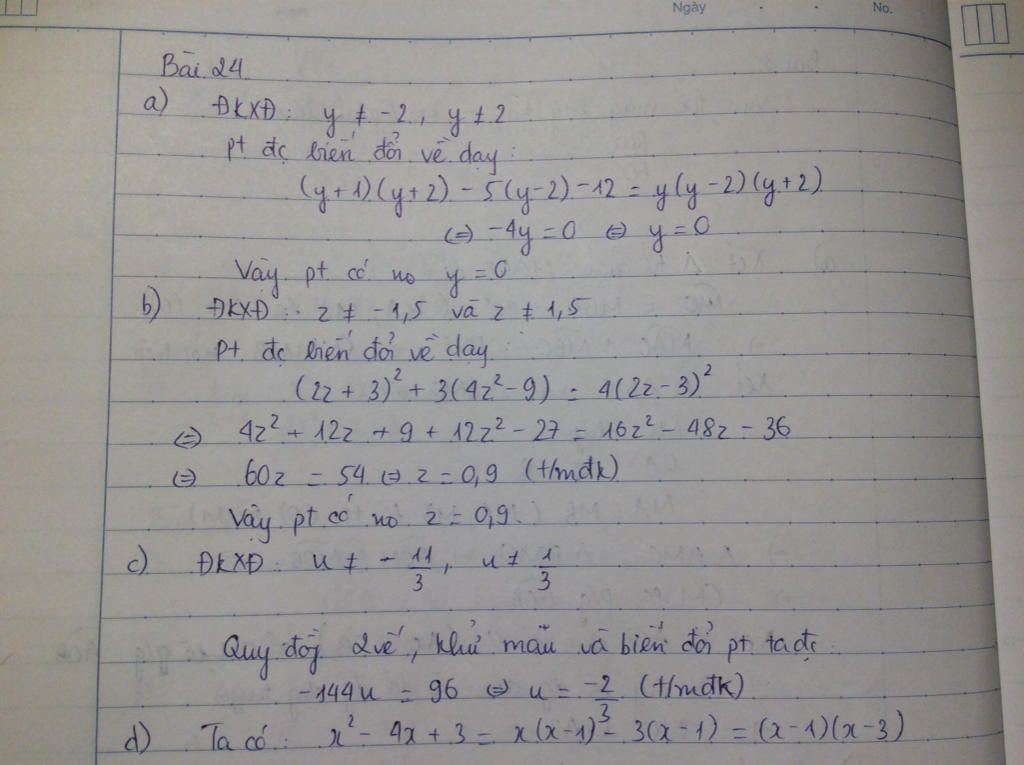 Ngày No.
Bài 24
a) ĐKXĐ: y ≠ -2, y ≠ 2
pt đc biến đổi về dạng:
(y+1)(y+2) - 5(y-2) - 12 = y(y-2)(y+2)
⇔ -4y = 0 ⇔ y = 0
Vậy pt có no y = 0
b) ĐKXĐ: z ≠ -1,5 và z ≠ 1,5
Pt đc biến đổi về dạng:
(2z + 3)² + 3(4z² - 9) = 4(2z - 3)²
⇔ 4z² + 12z + 9 + 12z² - 27 = 16z² - 48z - 36
⇔ 60z = 54 ⇔ z = 0,9 (t/mđk)
Vậy pt có no z = 0,9.
c) ĐKXĐ: u ≠ -11/3, u ≠ 1/3
Quy đồg 2 vế, khử mẫu và biến đổi pt ta đc:
-144u = 96 ⇔ u = -2/3 (t/mđk)
d) Ta có: x² - 4x + 3 = x(x-1) - 3(x-1) = (x-1)(x-3)